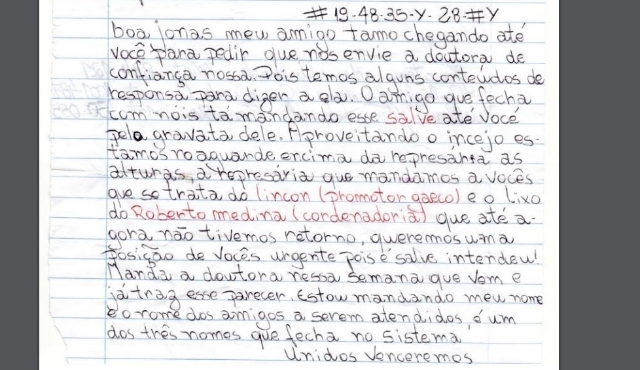 # 19-48-35-Y-28-#Y
boa jonas meu amigo tamo chegando até
você para pedir que nos envie a doutora de
confiança nossa. Pois temos alguns conteúdos de
responsa para dizer a ela. O amigo que fecha
com nois tá mandando esse salve até você
pela gravata dele. Aproveitando o incejo es-
tamos no aguardo encima da represária as
alturas, a represária que mandamos a vocês
que se trata do lincon (promotor gaeco) e o lixo
do Roberto medina (cordenadoria) que até a-
gora não tivemos retorno, queremos uma
posição de vocês urgente pois é salve intendeu!
Manda a doutora nessa semana que vem e
já traz esse parecer. Estou mandando meu nome
e o nome dos amigos a serem atendidos, é um
dos três nomes que fecha no sistema
Unidos Venceremos